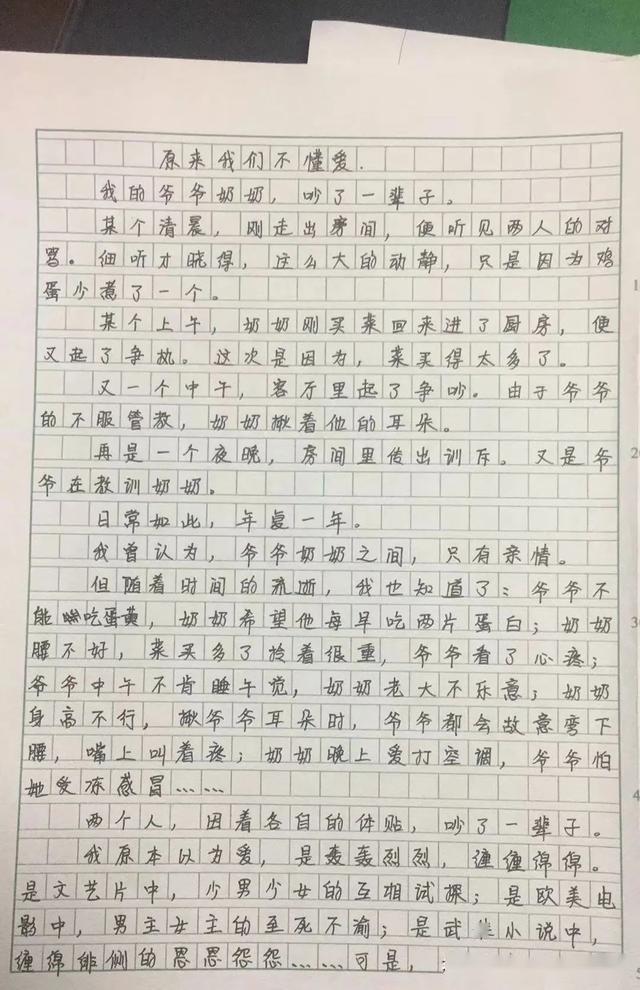 原来我们不懂爱.
我的爷爷奶奶，吵了一辈子。
某个清晨，刚走出房间，便听见两人的对
骂。细听才晓得，这么大的动静，只是因为鸡
蛋少煮了一个。
某个上午，奶奶刚买菜回来进了厨房，便
又起了争执。这次是因为，菜买得太多了。
又一个中午，客厅里起了争吵。由于爷爷
的不服管教，奶奶揪着他的耳朵。
再是一个夜晚，房间里传出训斥。又是爷
爷在教训奶奶。
日常如此，年复一年。
我曾认为，爷爷奶奶之间，只有亲情。
但随着时间的流逝，我也知道了：爷爷不
能吃蛋黄，奶奶希望他每早吃两片蛋白；奶奶
腰不好，菜买多了拎着很重，爷爷看了心疼；
爷爷中午不肯睡午觉，奶奶老大不乐意；奶奶
身高不行，揪爷爷耳朵时，爷爷都会故意弯下
腰，嘴上叫着疼；奶奶晚上爱打空调，爷爷怕
她受冻感冒……
两个人，因着各自的体贴，吵了一辈子。
我原本以为爱，是轰轰烈烈，缠缠绵绵。
是文艺片中，少男少女的互相试探；是欧美电
影中，男主女主的至死不渝；是武小说中，
缠绵悱恻的恩恩怨怨……可是，
1
20
30
4
5